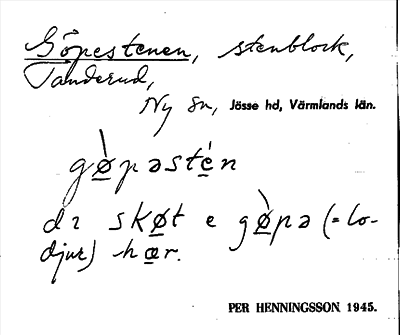 Göpestenen, stenblock,
Tanderud,
Ny sn, Jösse hd, Värmlands län.
gø̀pəsté̱n
dɪ skø̱t e gø̱̀pə (= lo-
djur) hær.
PER HENNINGSSON 1945.